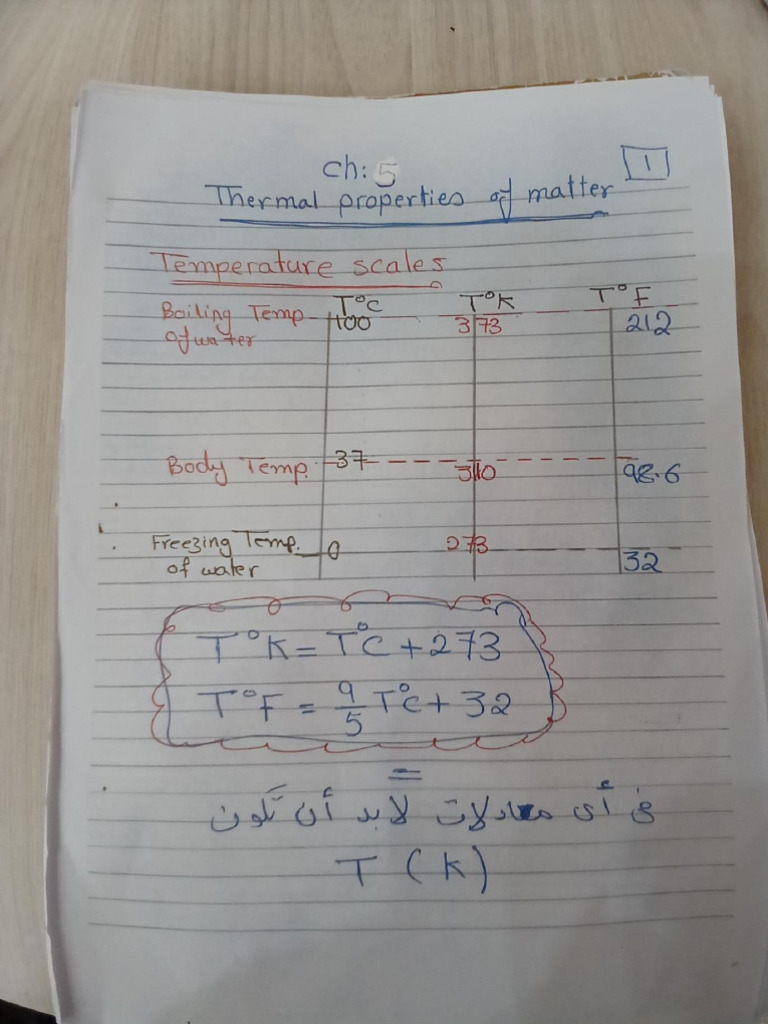 Ch: 5
1
Thermal properties of matter
Temperature scales
T°C T°K T°F
Boiling Temp 100 373 212
of water
Body Temp. 37 310 98.6
Freezing Temp. 0 273 32
of water
T°K = T°C + 273
T°F = 9/5 T°C + 32
=
في أى معادلات لابد أن تكون
T (K)